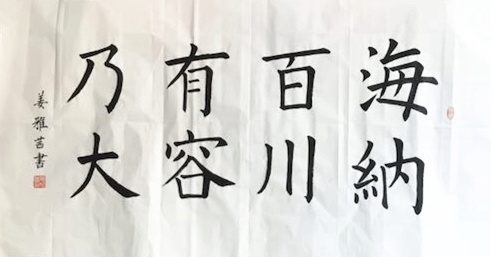 海納
百川
有容
乃大
姜雅茜書